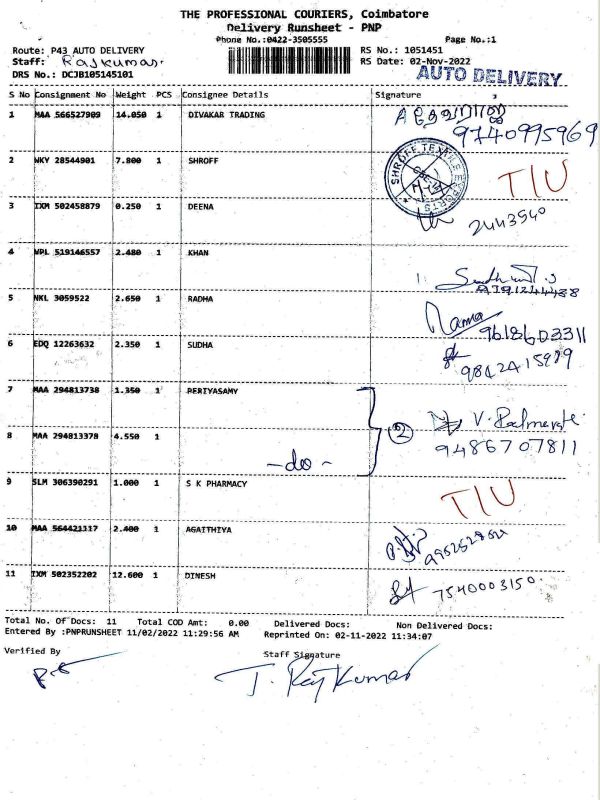 THE PROFESSIONAL COURIERS, Coimbatore
Delivery Runsheet - PNP
Phone No:0422-3505555 Page No.:1
Route: P43 AUTO DELIVERY RS No.: 1051451
Staff: Rajkumar. RS Date: 02-Nov-2022
DRS No.: DCJB105145101 AUTO DELIVERY
S No Consignment No Weight PCS Consignee Details Signature
1 MAA 566527909 14.050 1 DIVAKAR TRADING
9740995969
2 WKY 28544901 7.800 1 SHROFF T/U
SHROFF TEXTILE EXPORTS
3 IXM 502458879 0.250 1 DEENA 2443540
4 WPL 519146557 2.480 1 KHAN
5 NKL 3059522 2.650 1 RADHA
Rama 9618603311
6 EDQ 12263632 2.350 1 SUDHA
9842415989
7 MAA 294813738 1.350 1 PERIYASAMY
8 MAA 294813378 4.550 1 -do- 2 9486707811
9 SLM 306390291 1.000 1 S K PHARMACY T/U
10 MAA 564421117 2.400 1 AGAITHIYA
11 IXM 502352202 12.600 1 DINESH 7540003150
Total No. Of Docs: 11 Total COD Amt: 0.00 Delivered Docs: Non Delivered Docs:
Entered By :PNPRUNSHEET 11/02/2022 11:29:56 AM Reprinted On: 02-11-2022 11:34:07
Verified By Staff Signature
T. Rajkumar